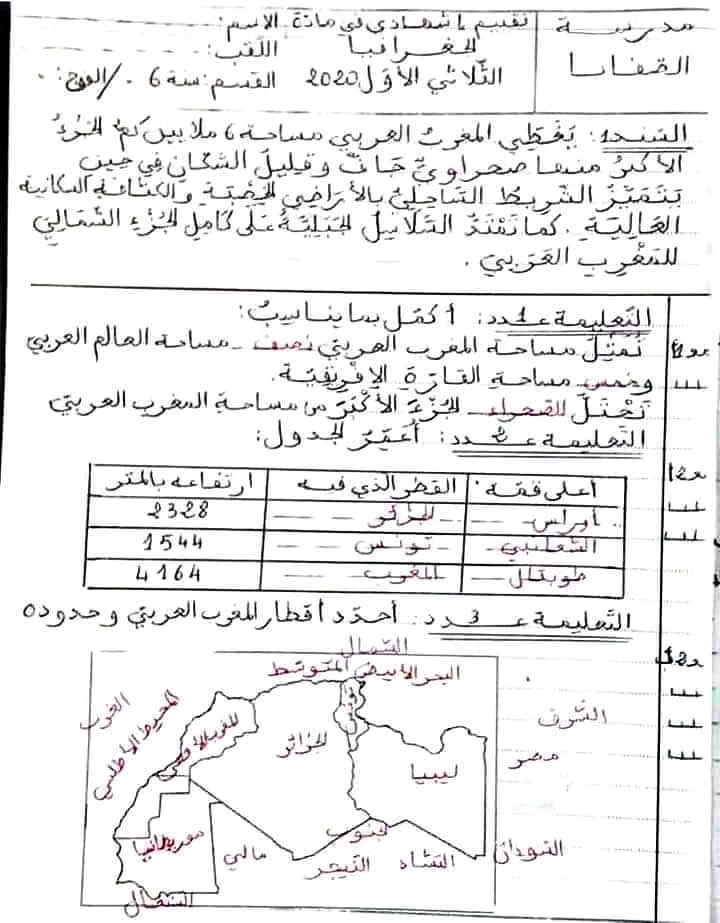 مدرسة
القفايا
تقييم إشهادي في مادة الاسم:
الجغرافيا اللقب:
الثلاثي الأول 2020 القسم: سنة 6
السند1: يغطي المغرب العربي مساحة 6 ملايين كم² الجزء
الأكبر منها صحراوي جاف وقليل السكان في حين
يتميز الشريط الساحلي بالأراضي الخصبة والكثافة السكانية
العالية. كما تمتد السلاسل الجبلية على كامل الجزء الشمالي
للمغرب العربي.
التعليمة عـ1ـدد: أكمل بما يناسب:
تمثل مساحة المغرب العربي نصف مساحة العالم العربي
وخمس مساحة القارة الإفريقية.
تحتل الصحراء الجزء الأكبر من مساحة المغرب العربي
التعليمة عـ2ـدد: أعمر الجدول:
أعلى قمة القطر الذي فيه ارتفاعه بالمتر
أوراس الجزائر 2328
الشعانبي تونس 1544
طوبقال المغرب 4164
التعليمة عـ3ـدد: أحدد أقطار المغرب العربي وحدوده
الشمال
البحر الأبيض المتوسط
الغرب
المحيط الأطلسي
المغرب الأقصى
الجزائر
تونس
ليبيا
الشرق
مصر
موريطانيا
مالي
جنوب
النيجر
التشاد
السودان
السنغال